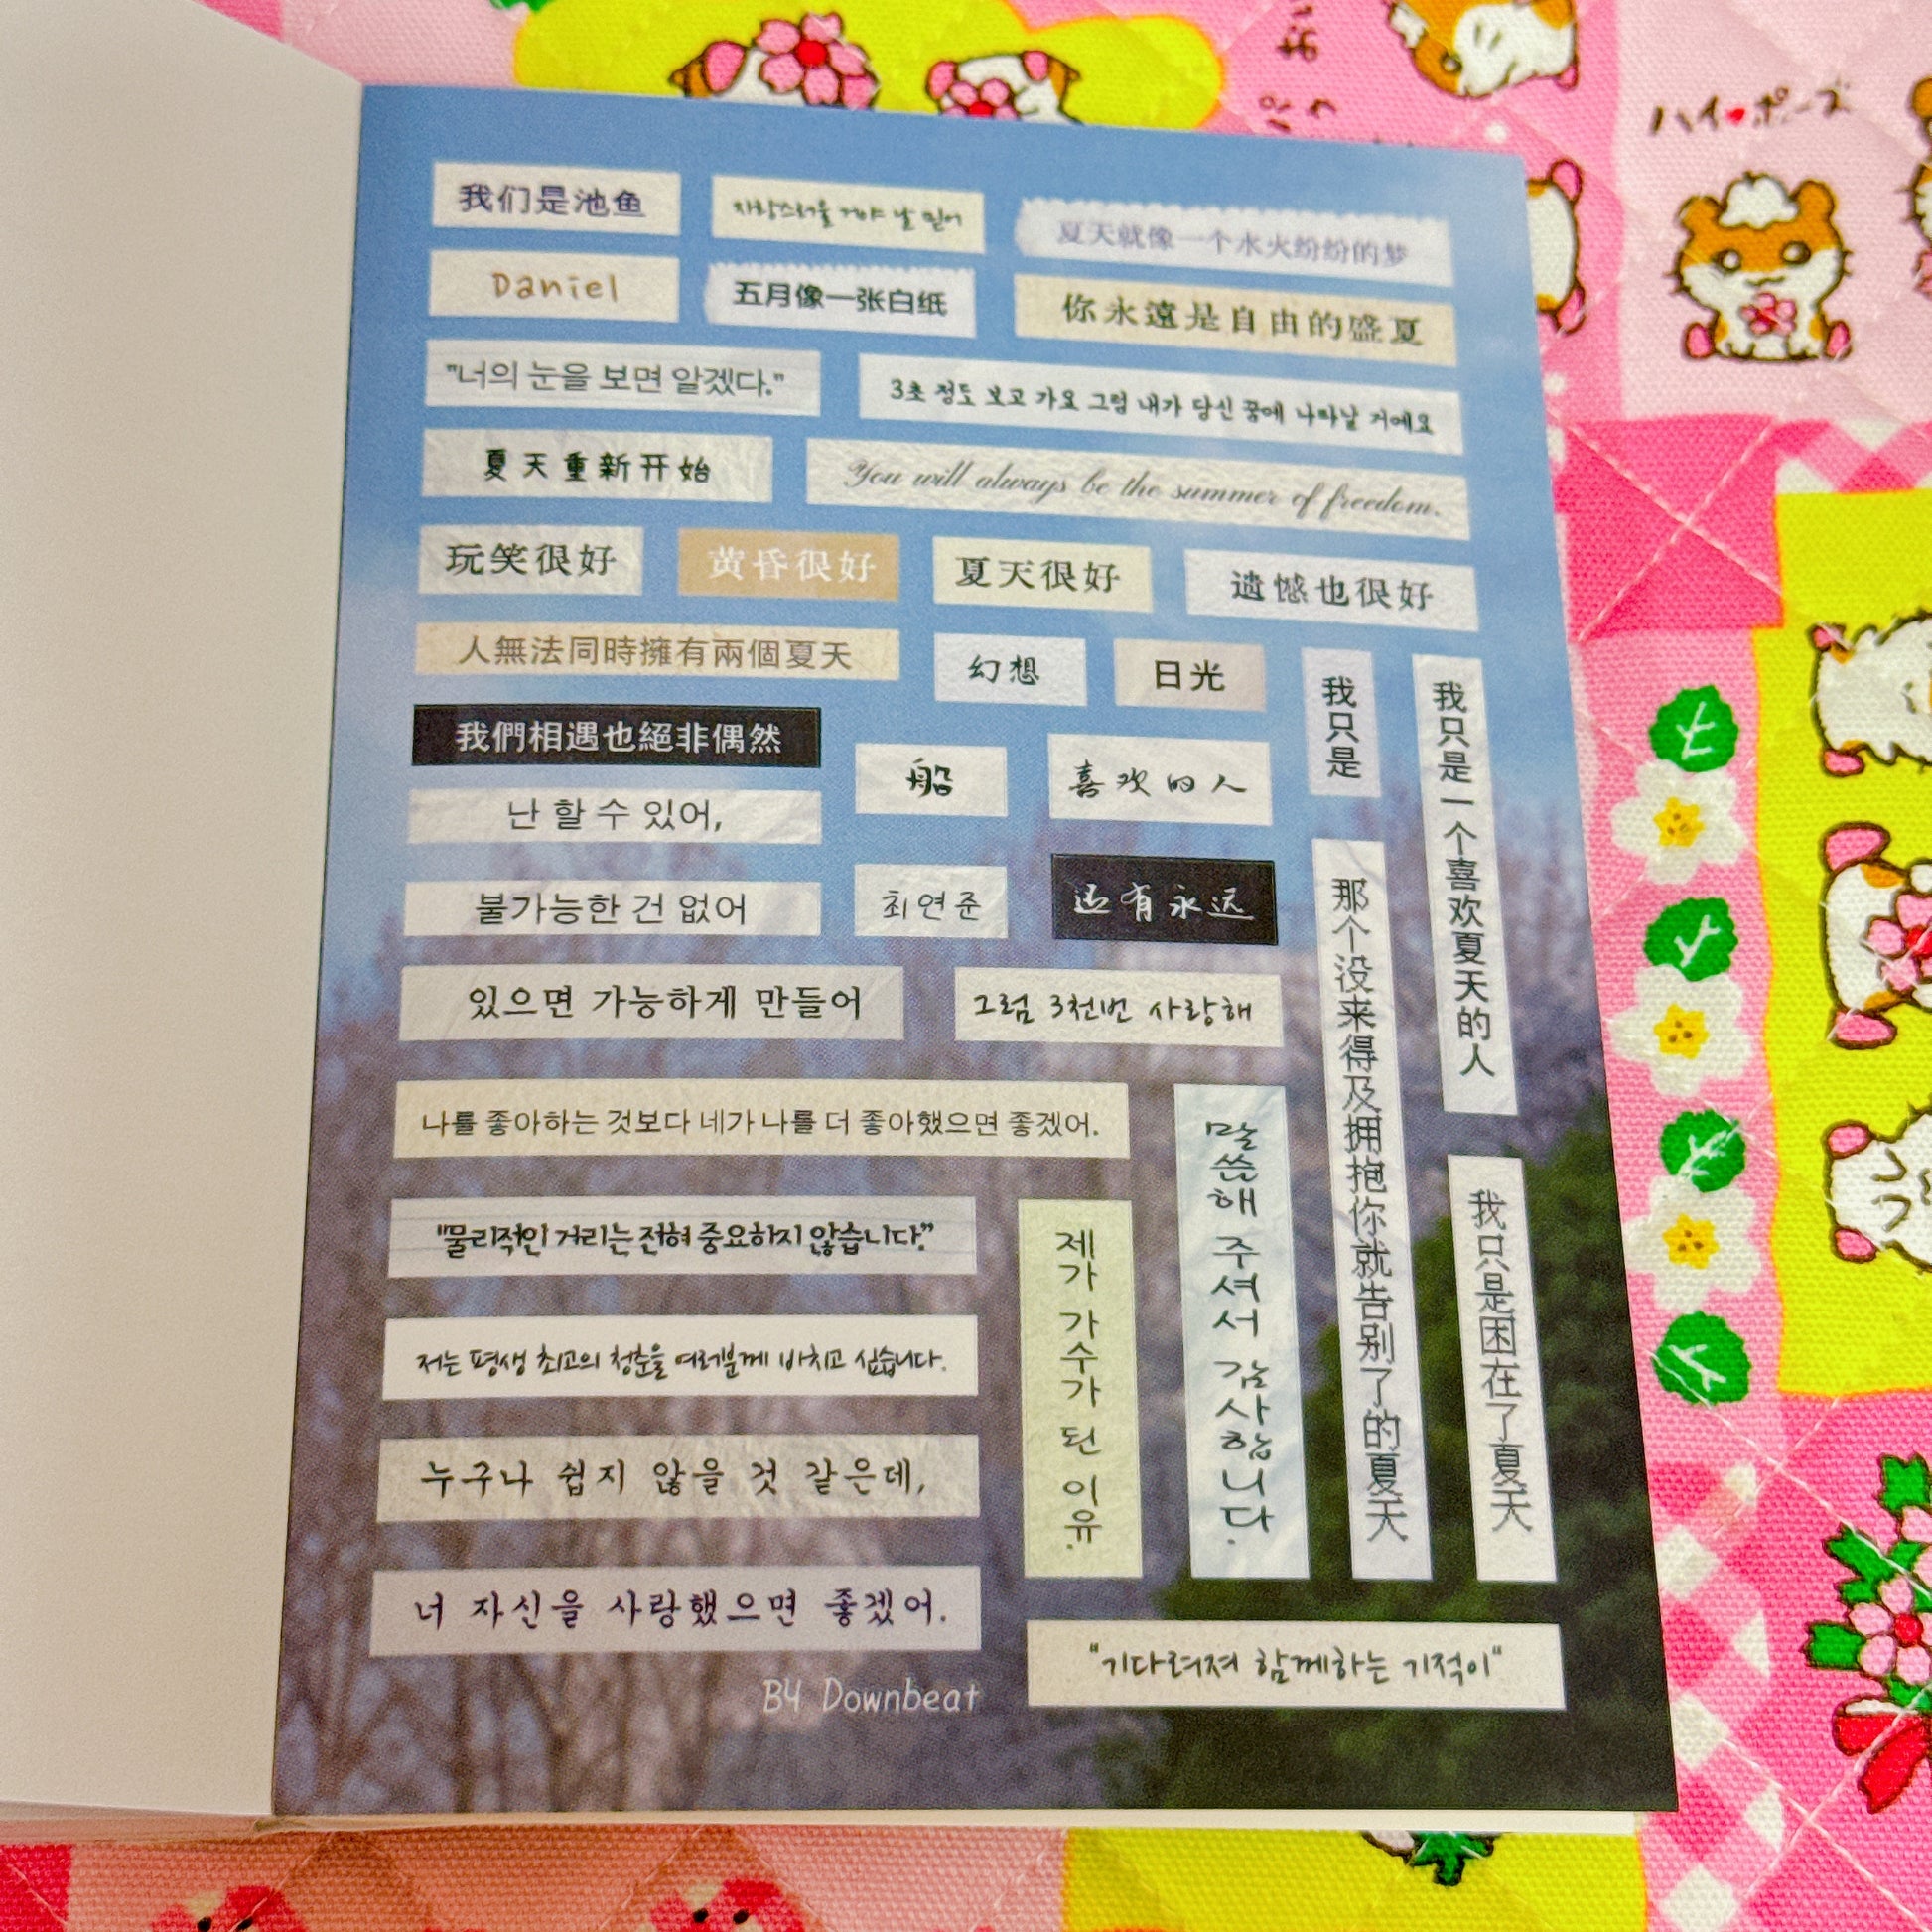 我们是池鱼
자랑스러울 거야 날 믿어
夏天就像一个水火纷纷的梦
Daniel
五月像一张白纸
你永遠是自由的盛夏
"너의 눈을 보면 알겠다."
3초 정도 보고 가요 그럼 내가 당신 꿈에 나타날 거예요
夏天重新开始
You will always be the summer of freedom.
玩笑很好
黄昏很好
夏天很好
遗憾也很好
人無法同時擁有兩個夏天
幻想
日光
我只是
我只是一个喜欢夏天的人
我們相遇也絕非偶然
船
喜欢的人
난 할 수 있어,
불가능한 건 없어
최연준
还有永远
那个没来得及拥抱你就告别了的夏天
있으면 가능하게 만들어
그럼 3천번 사랑해
나를 좋아하는 것보다 네가 나를 더 좋아했으면 좋겠어.
말씀해 주셔서 감사합니다.
我只是困在了夏天
"물리적인 거리는 전혀 중요하지 않습니다."
제가 가수가 된 이유.
저는 평생 최고의 청춘을 여러분께 바치고 싶습니다.
누구나 쉽지 않을 것 같은데,
너 자신을 사랑했으면 좋겠어.
"기다려져 함께하는 기적이"
BY Downbeat
ハイ♥ポーズ